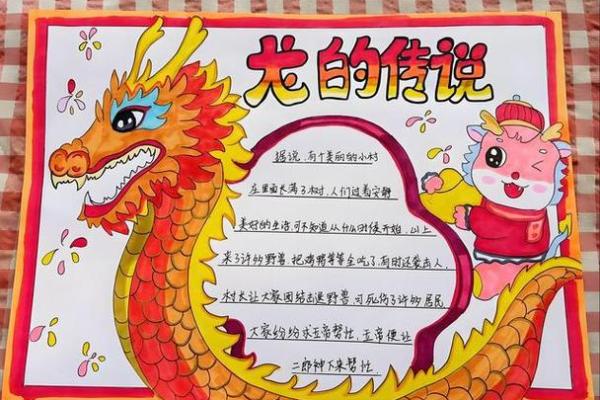 龙的传说
据说,有个美丽的小村
在里面长满了树,人们过着安静
美好的生活,可不知道从什么时候开始,山上
来了许的野兽,把鸡鸭等等全吃了,有时还袭击人,
村长让大家团结击退野兽,可死伤了许的居民
大家纷纷求玉帝帮忙,玉帝便让
二郎神下来帮忙